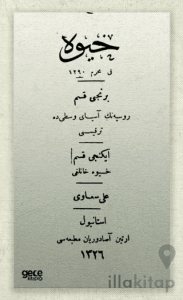 خیوه
فی محرم ١٢٩٠
برنجی قسم
روسیه‌نك آسیای وسطی‌ده
ترقیسی
ایکنجی قسم
خیوه خانلغی
علی سعاوی
استانبول
اوتین آصادوریان مطبعه‌سی
١٣٢٦
gece
illakitap